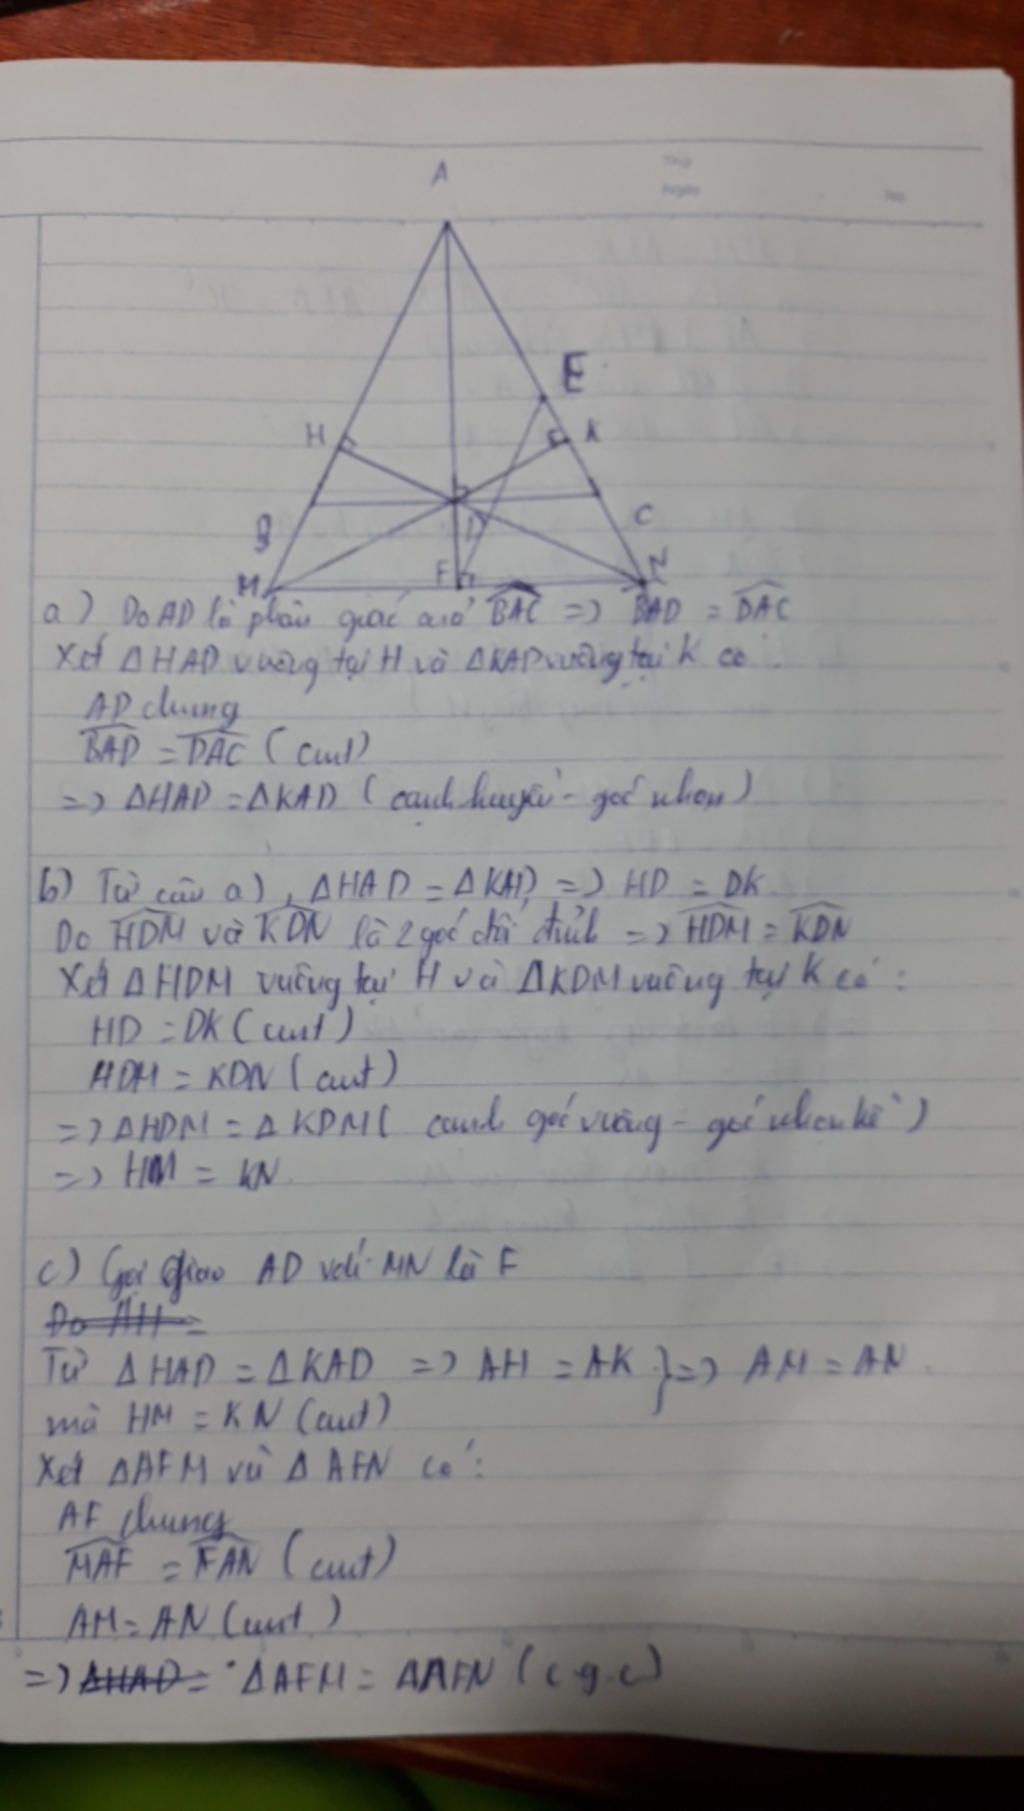 Thứ
Ngày
No
A
E
H
K
B
C
D
M
F
N
a) Do AD là phân giác của BAC => BAD = DAC
Xét ΔHAD vuông tại H và ΔKAD vuông tại K có :
AD chung
BAD = DAC (cmt)
=> ΔHAD = ΔKAD (cạnh huyền - góc nhọn)
b) Từ câu a), ΔHAD = ΔKAD => HD = DK
Do HDM và KDN là 2 góc đối đỉnh => HDM = KDN
Xét ΔHDM vuông tại H và ΔKDM vuông tại K có :
HD = DK (cmt)
HDM = KDN (cmt)
=> ΔHDM = ΔKDM ( cạnh góc vuông - góc nhọn kề )
=> HM = KN
c) Gọi giao AD với MN là F
Do AH =
Từ ΔHAD = ΔKAD => AH = AK } => AM = AN
mà HM = KN (cmt)
Xét ΔAFM và ΔAFN có :
AF chung
MAF = FAN (cmt)
AM = AN (cmt)
=> ΔHAD = ΔAFM = ΔAFN (c.g.c)